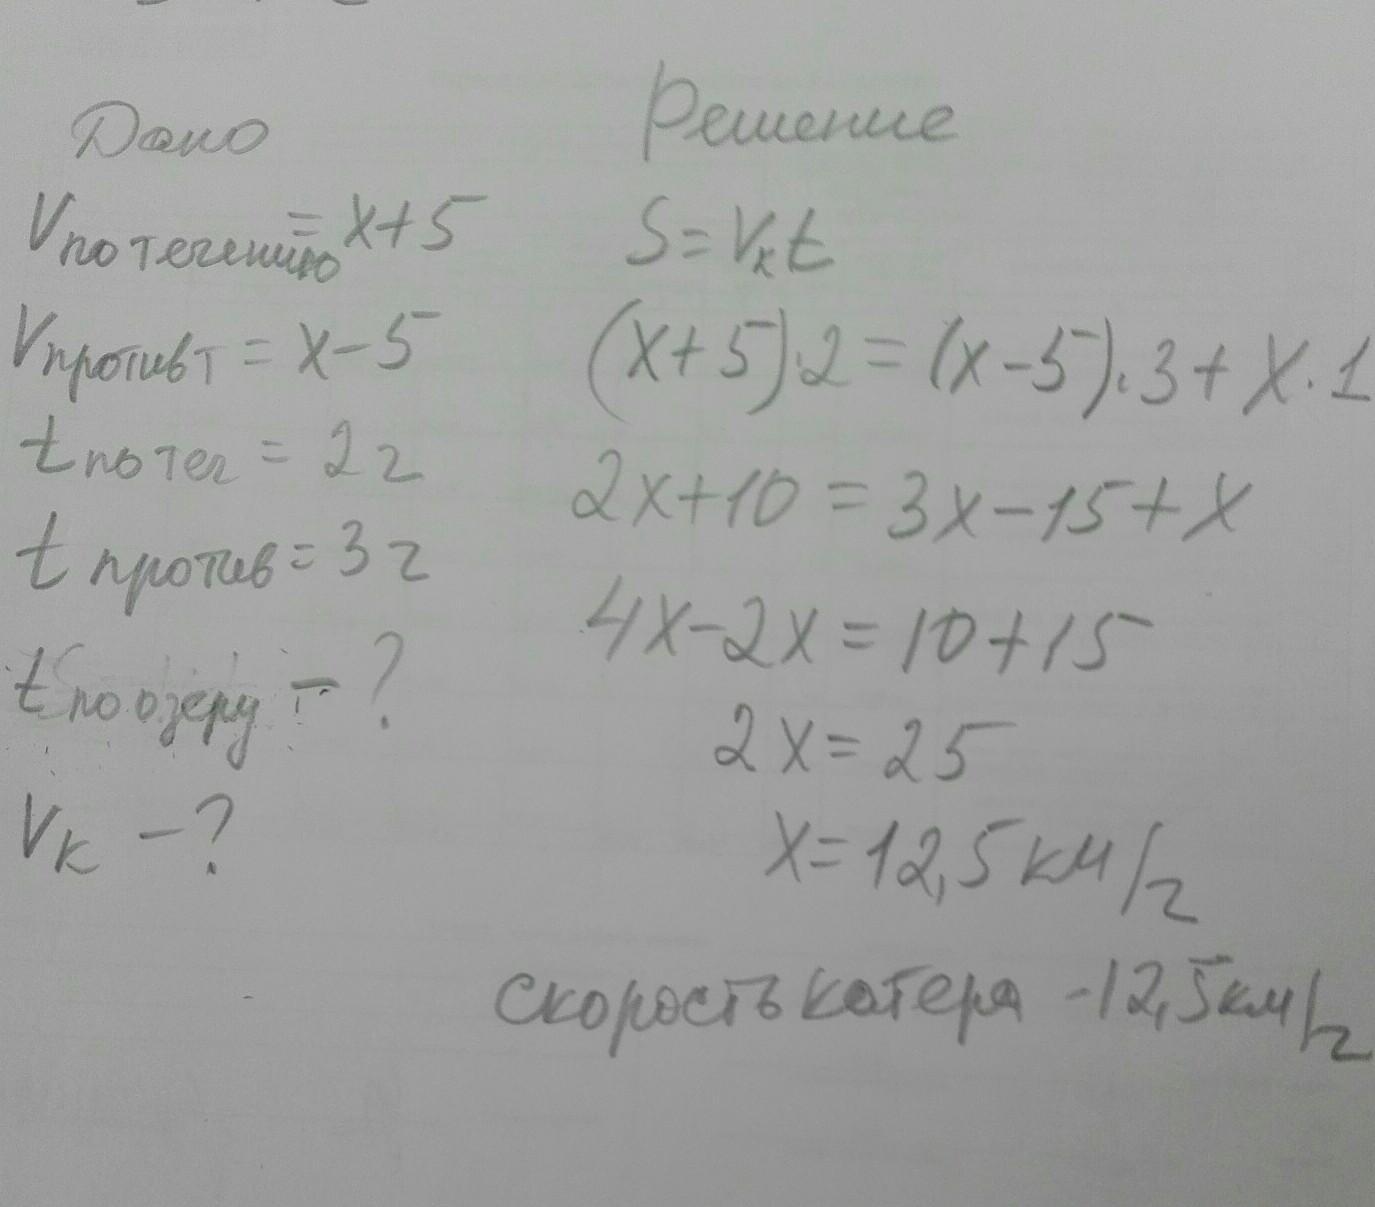 Дано
Vпо течению = x+5
Vпротив т = x-5
t по теч = 2 ч
t против = 3 ч
t по озеру - ?
Vк - ?
Решение
S = Vк t
(x+5)·2 = (x-5)·3 + x·1
2x+10 = 3x-15+x
4x-2x = 10+15
2x = 25
x = 12,5 км/ч
скорость катера - 12,5 км/ч